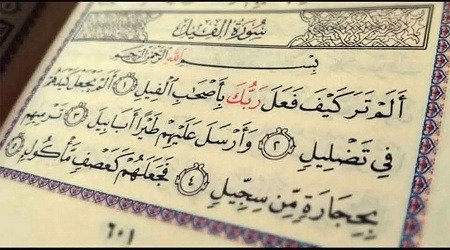 سُورَةُ الْفِيلِ
بِسْمِ اللَّهِ الرَّحْمَٰنِ الرَّحِيمِ
أَلَمْ تَرَ كَيْفَ فَعَلَ رَبُّكَ بِأَصْحَابِ الْفِيلِ ١ أَلَمْ يَجْعَلْ كَيْدَهُمْ
فِي تَضْلِيلٍ ٢ وَأَرْسَلَ عَلَيْهِمْ طَيْرًا أَبَابِيلَ ٣ تَرْمِيهِمْ
بِحِجَارَةٍ مِّن سِجِّيلٍ ٤ فَجَعَلَهُمْ كَعَصْفٍ مَّأْكُولٍ ٥
٦٠١